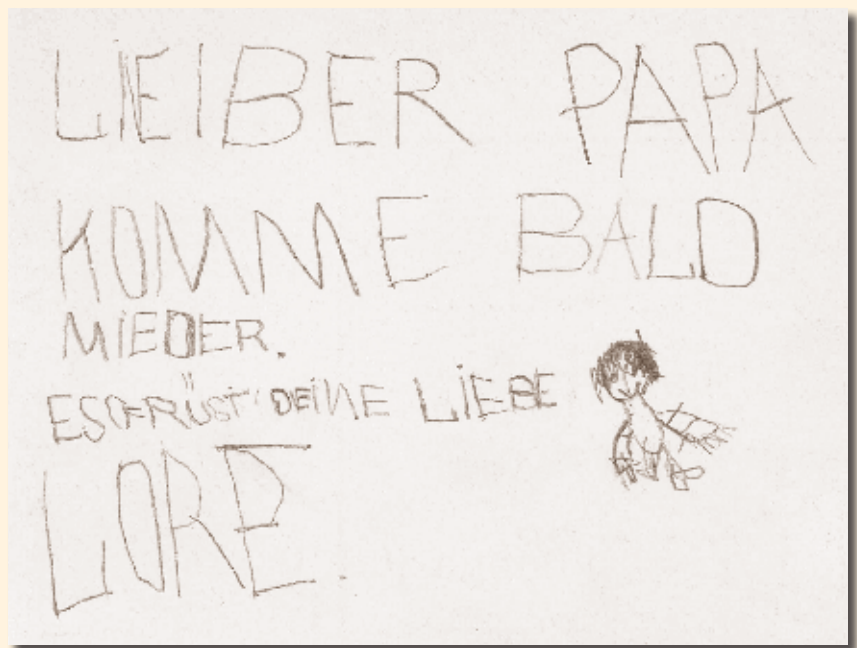 LIEIBER PAPA
KOMME BALD
MIEDER.
ESGRÜST DEINE LIEBE
LORE.